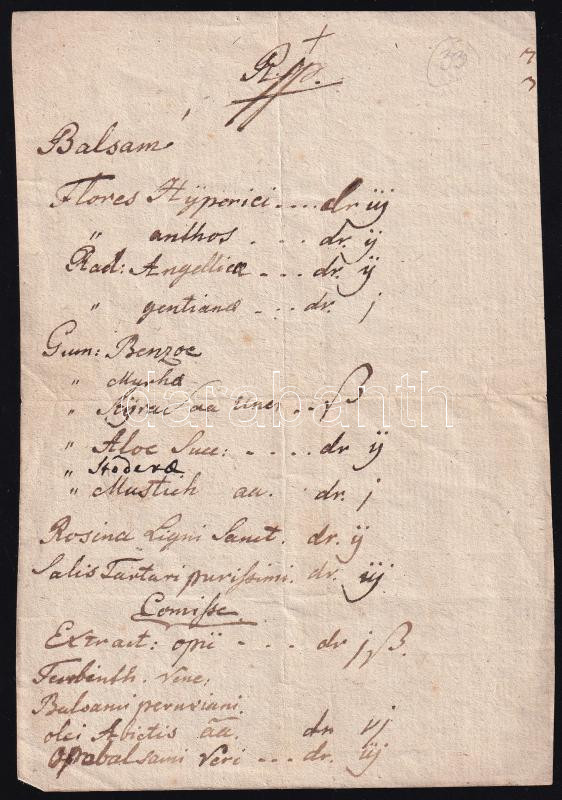 33
Rp.
Balsam
Flores Hÿperici .... dr iij
" anthos . ... dr. ij
Rad: Angellicæ ... dr. ij
" gentianæ ... dr. j
Gum: Benzoe
" Myrhæ
" Stÿrac aa unc. .. ß
" Aloe Succ: .... dr ij
" Hederæ
" Mastich aa. dr. j
Rosina Ligni Sanct. dr. ij
Salis Tartari purissimi. dr. iij
Comisse
Extract: opii - .. dr j ß.
Terbinth. Vene:
Balsami peruviani.
olei Abietis aa. dr vj
Opobalsami Veri ... dr. iij
darabanth